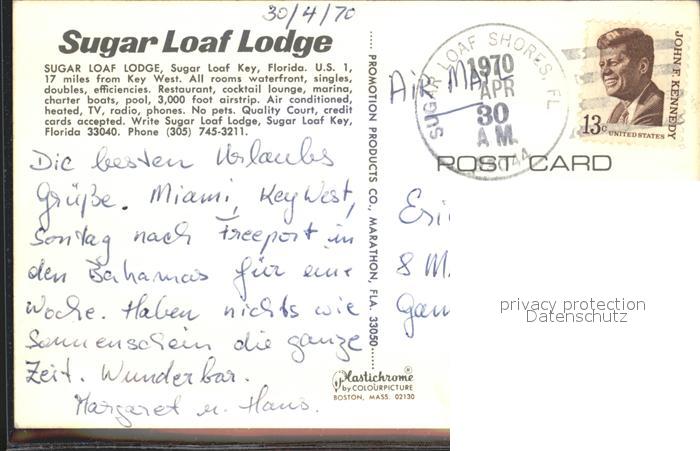 30/4/70
Sugar Loaf Lodge
SUGAR LOAF LODGE, Sugar Loaf Key, Florida. U.S. 1,
17 miles from Key West. All rooms waterfront, singles,
doubles, efficiencies. Restaurant, cocktail lounge, marina,
charter boats, pool, 3,000 foot airstrip. Air conditioned,
heated, TV, radio, phones. No pets. Quality Court, credit
cards accepted. Write Sugar Loaf Lodge, Sugar Loaf Key,
Florida 33040. Phone (305) 745-3211.
Die besten Urlaubs
Grüße. Miami, Key West,
Sonntag nach Freeport in
den Bahamas für eine
Woche. Haben nichts wie
Sonnenschein die ganze
Zeit. Wunderbar.
Margaret u. Hans.
PROMOTION PRODUCTS CO., MARATHON, FLA. 33050
Plastichrome
by COLOURPICTURE
BOSTON, MASS. 02130
Air Mail
SUGAR LOAF SHORES, FL
1970
APR
30
A M
JOHN F. KENNEDY
13c
UNITED STATES
POST CARD
Eri
8 M
Gan
privacy protection
Datenschutz